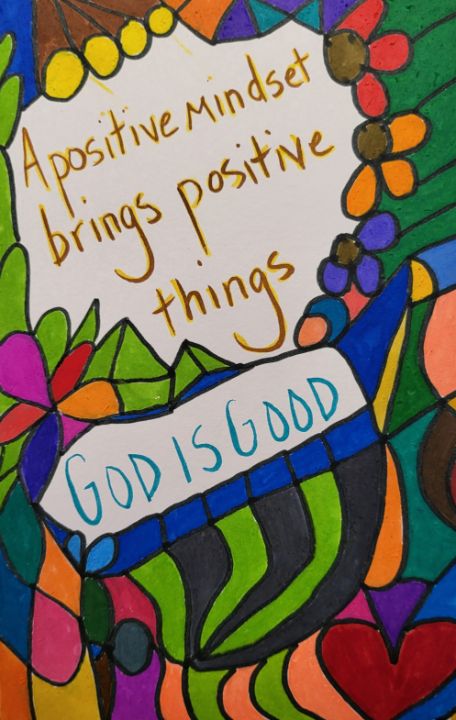 A positive mindset
brings positive
things
GOD IS GOOD